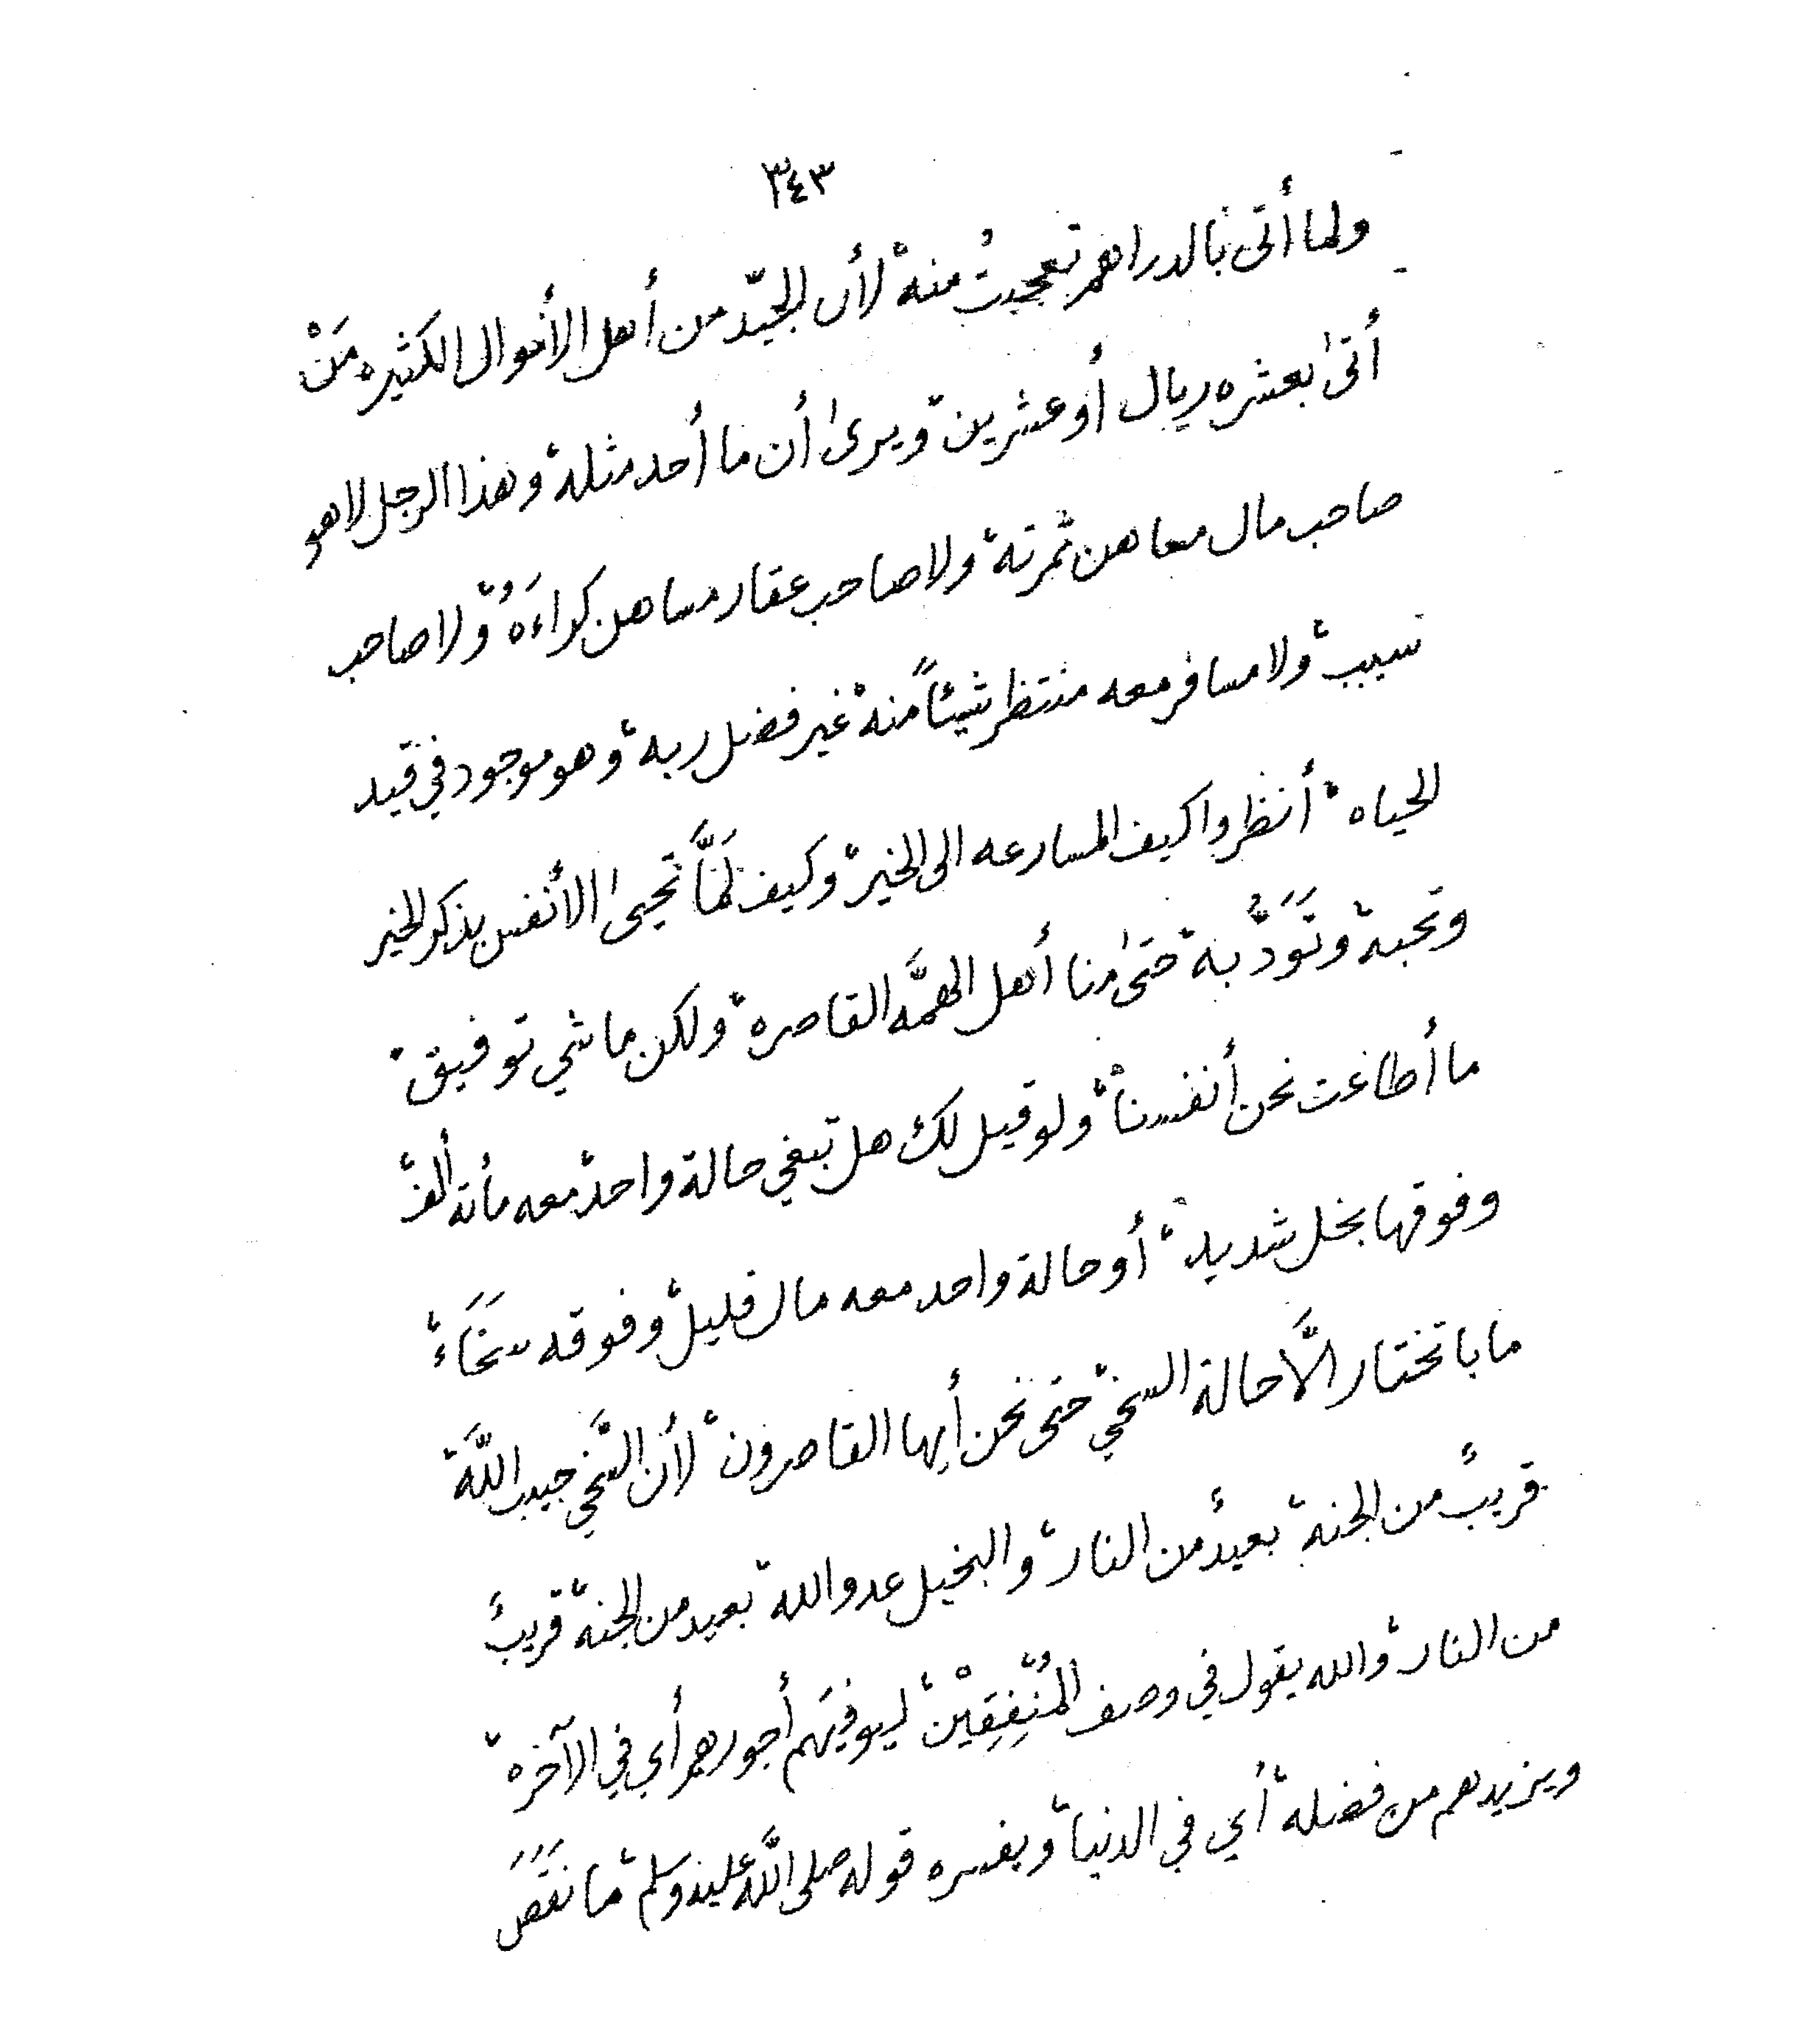 ٣٤٣
ولما أتى بالدراهم تعجبتُ منه، لأن الجيّد من أهل الأموال الكثيره مَنْ
أتىٰ بعشره ريال أو عشرين، ويرىٰ أن ما أحد مثله، وهذا الرجل لا هو
صاحب مال معا هن ثمرته، ولا صاحب عقار مسا هن كراءَهُ، ولا صاحب
سبب، ولا مسافر معه منتظر شيئاً منه، غير فضل ربه، وهو موجود في قيد
الحياه، أنظروا كيف المسارعه الى الخير، وكيف لَمَّا تحيىٰ الأنفس بذكر الخير
وتحبه، وتَوَدُّ به، حتىٰ منا أهل الهمَّه القاصره، ولكن ما شي توفيق،
ما أطاعت نحن أنفسنا، ولو قيل لك هل تبغي حالة واحد معه مأته ألف،
وفوقها بخل شديد، أو حالة واحد معه مال قليل، وفوقه سَخَاءَ،
ما با تختار الَّا حالة السخي، حتى نحن أيها القاصرون، لأن السَّخي حبيب اللَّه،
قريبٌ من الجنه، بعيدٌ من النار، والبخيل عدو الله، بعيد من الجنه، قريبٌ
من النار، والله يقول في وصف المُنْفِقِيْن، ليوفيَهم أجورهم أي في الآخره،
ويزيدهم من فضله، أي في الدنيا، ويفسره قوله صلى اللَّه عليه وسلم، ما نَقَصَ